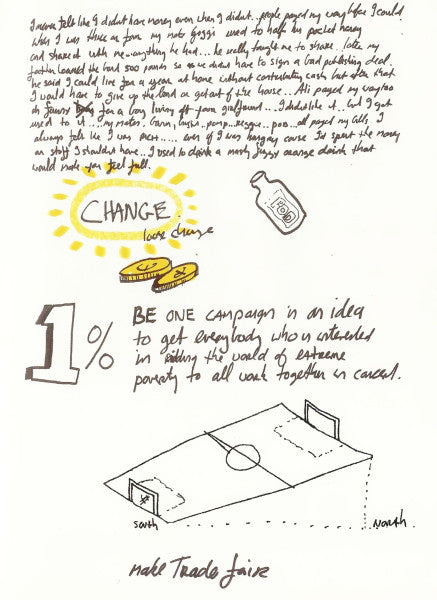 I never felt like I didnt have money even when I didnt... people payed my way before I could
When I was three or four my mate Goggi used to half his pocket money
and shared it with me.. anything he had... he really taught me to share. later my
father loaned the band 500 pounds so we didnt have to sign a bad publishing deal.
he said I could live for a year at home without contributing cash but after that
I would have to give up the band or get out of the house... Ali payed my way too
its funny for a boy living off from girlfriend... I didnt like it.. but I got
used to it .... my mates.. Gavin, Guggi.. pomp... Reggie... poo.. all payed my bills, I
always felt like I was rich..... even if I was hungry cause Id spent the money
on stuff I shouldnt have.. I used to drink a mushy fizzy orange drink that
would make you feel full.
CHANGE.
loose change
POP
1% BE ONE CAMPAIGN is an idea
to get everybody who is interested
in ridding the world of extreme
poverty to all work together in concert.
South
North.
make Trade fair